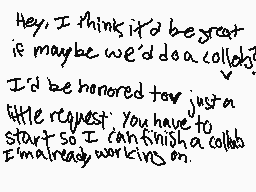 Hey, I think it'd be great
if maybe we'd do a collab?
I'd be honored to, just a
little request. You have to
start so I can finish a collab
I'm already working on.